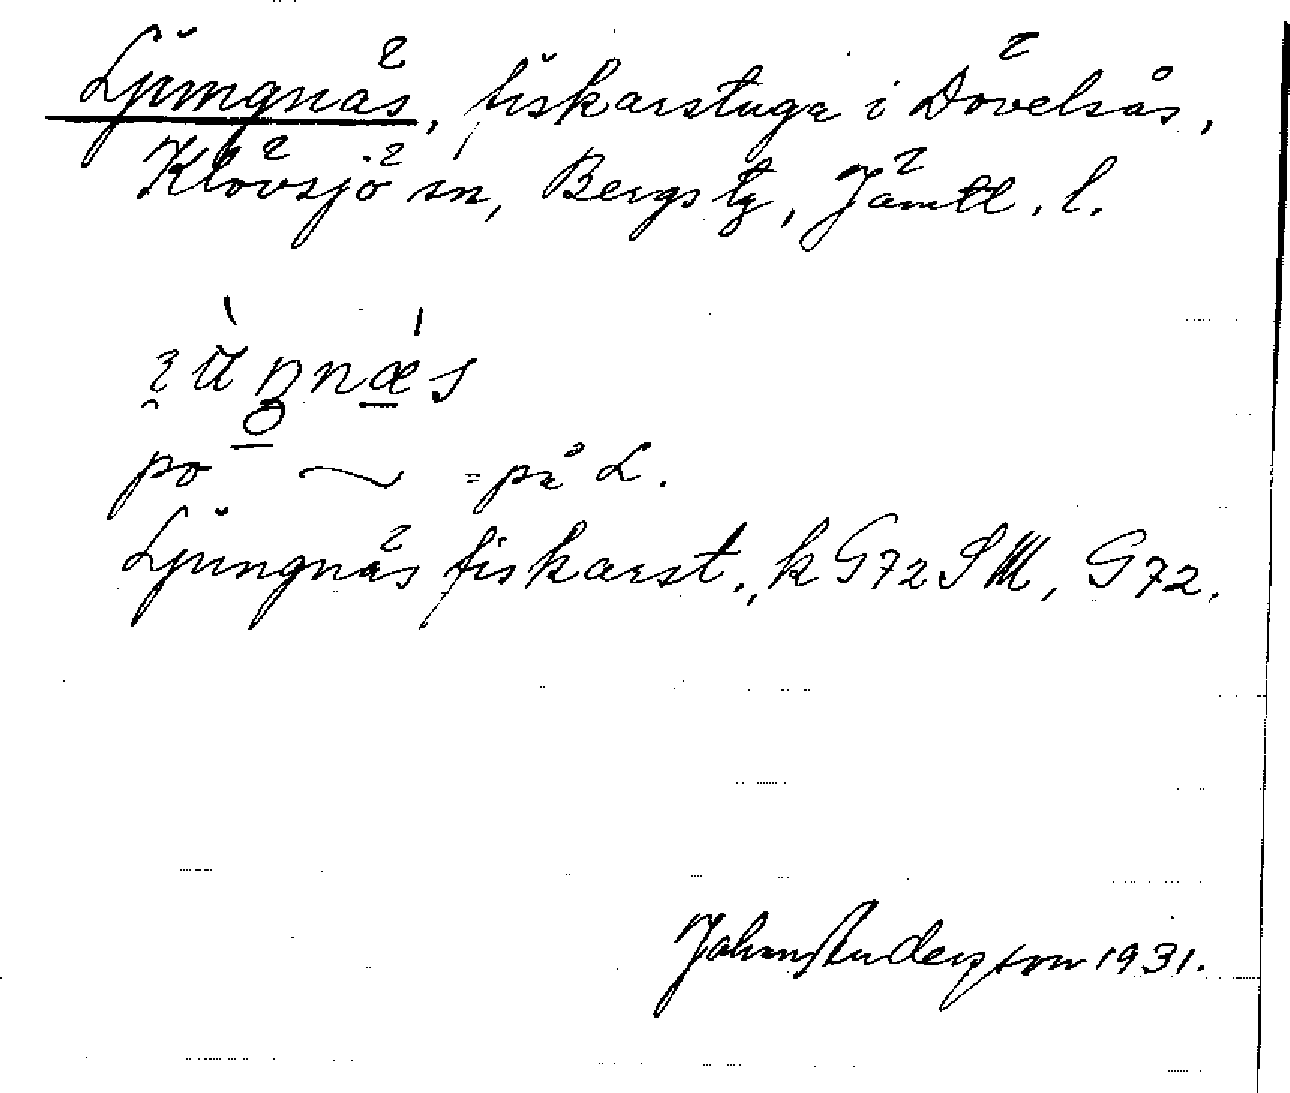 Ljungnäs, fiskarstuga i Dövelsås,
Klövsjö sn, Bergs tg, Jämtl. l.
po ~ = på L.
Ljungnäs fiskarst., k G72SM, G72.
John Anderzson 1931.